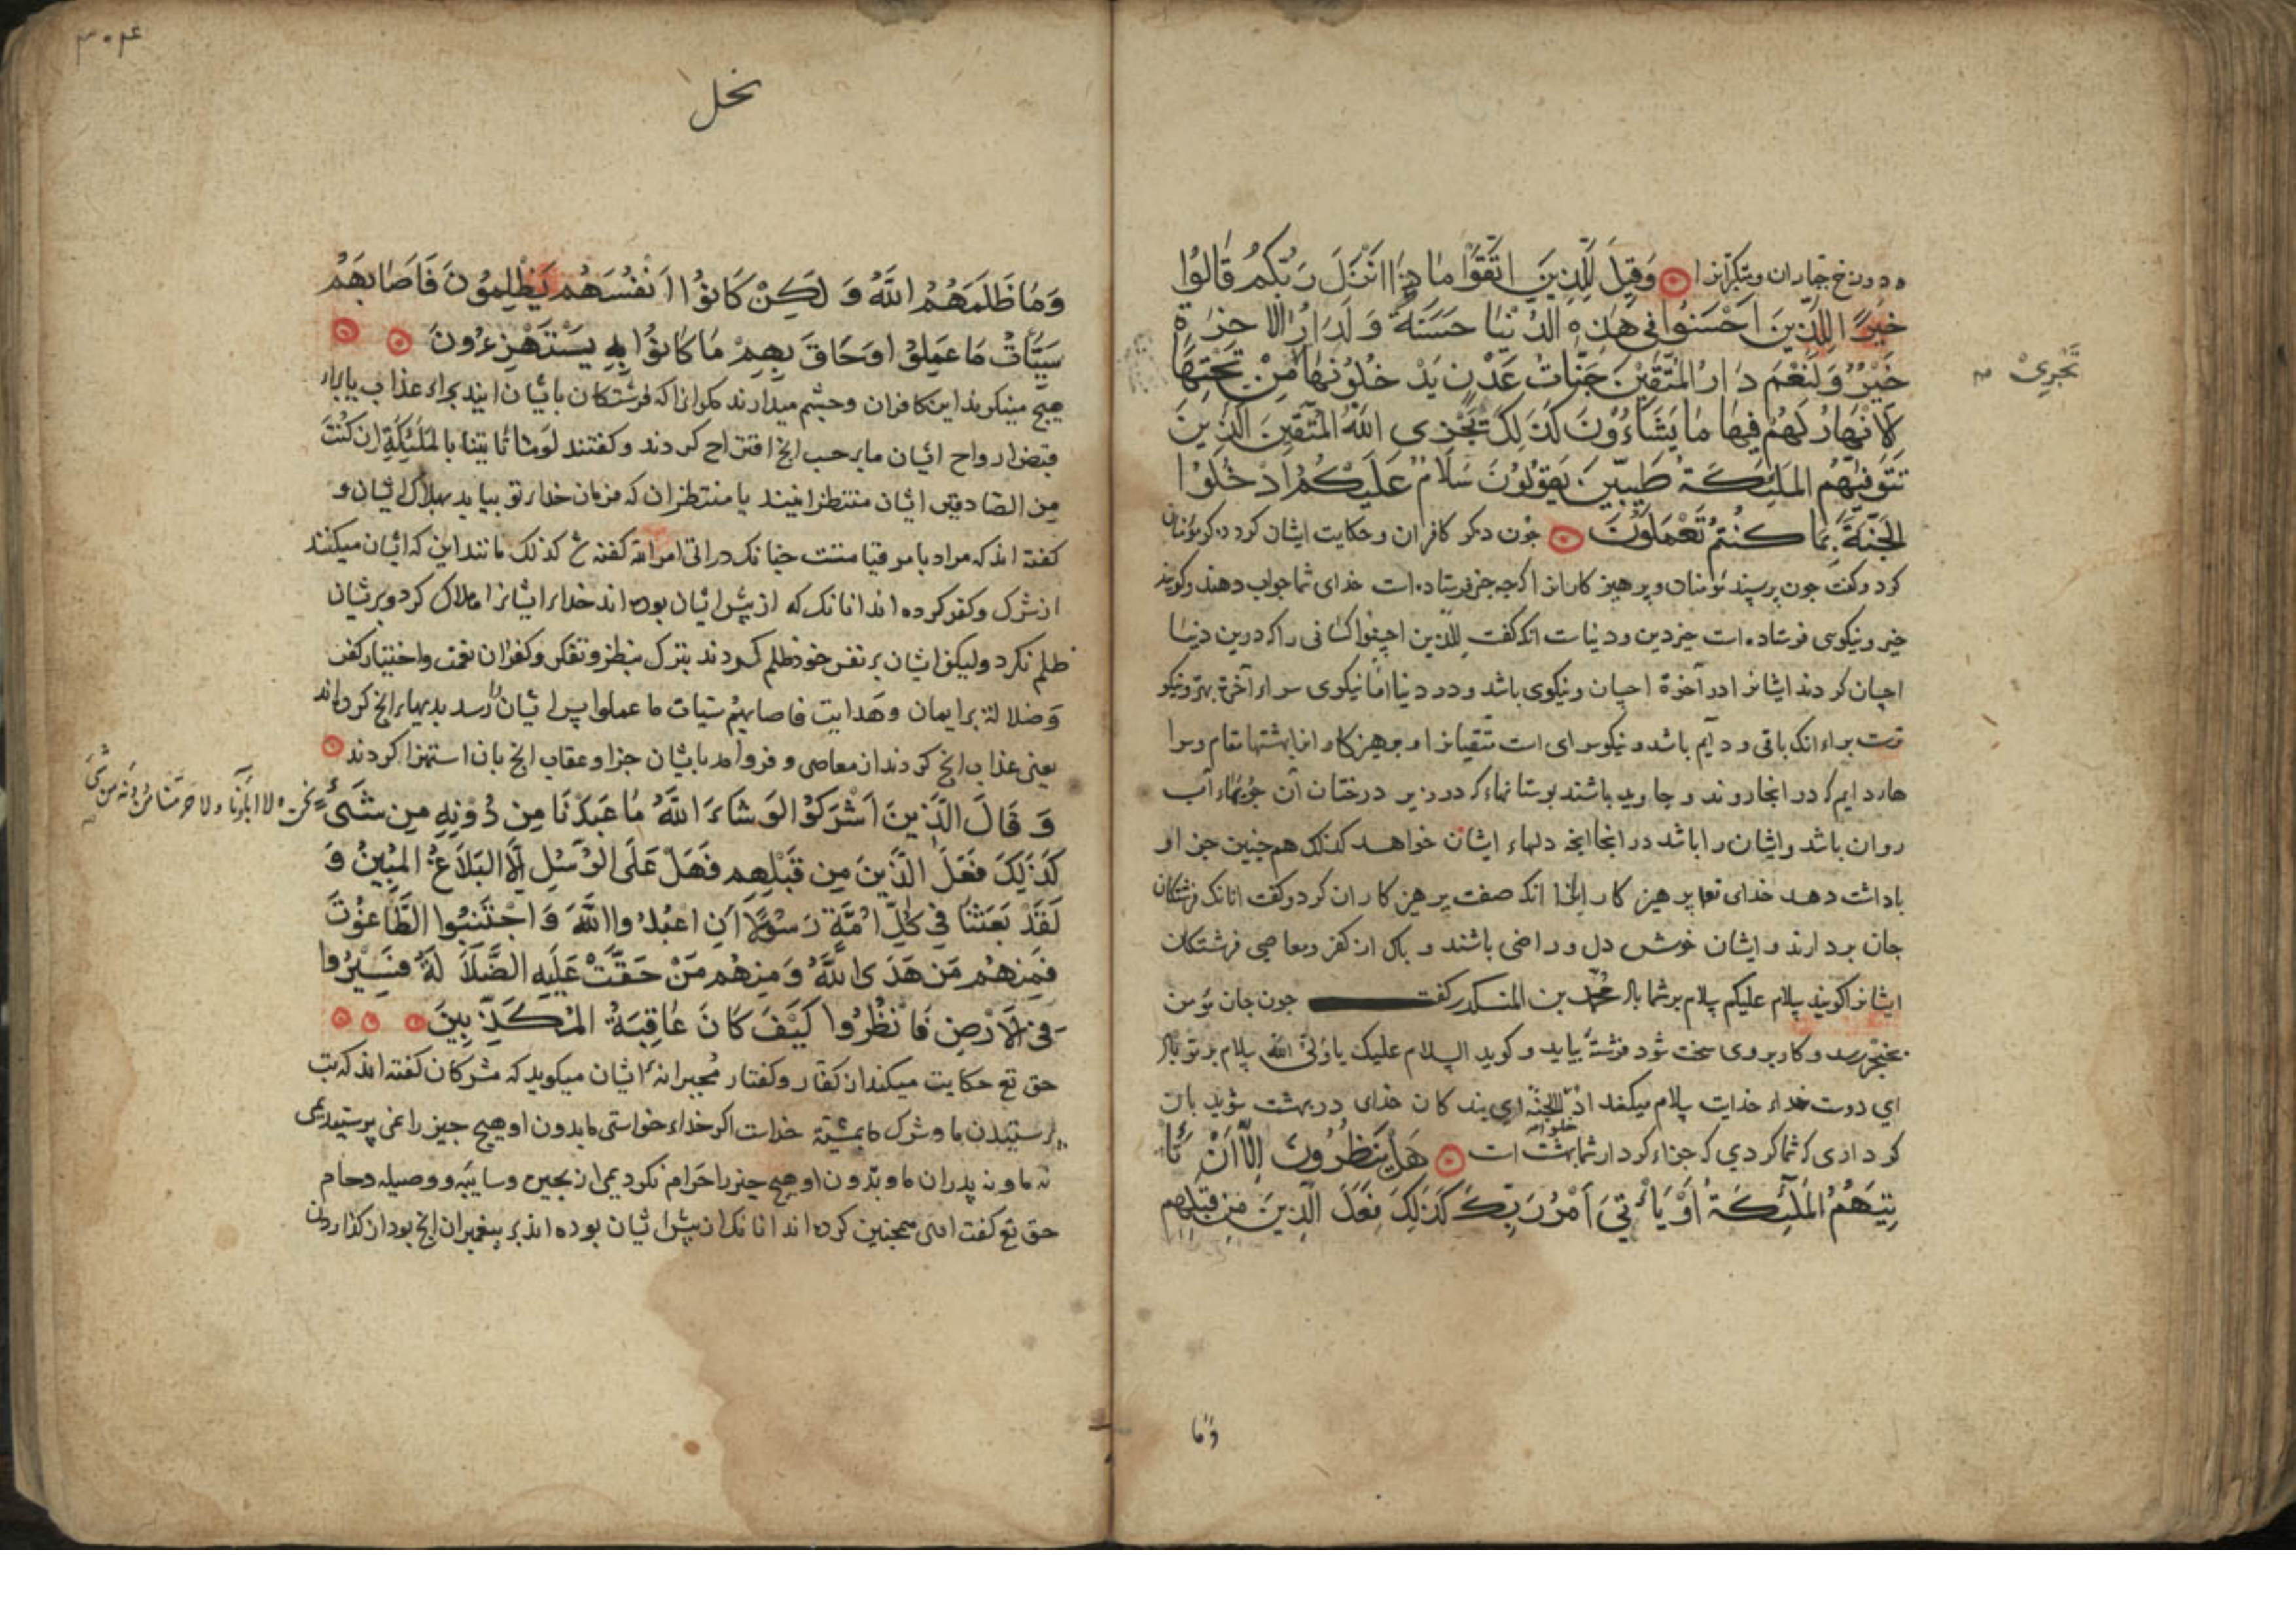 دوزخ جباران و متکبرانرا وَقِيلَ لِلَّذِينَ اتَّقَوْا مَاذَا اَنْزَلَ رَبُّكُمْ قَالُوا
خَيْرًا لِلَّذِينَ اَحْسَنُوا فِي هٰذِهِ الدُّنْيَا حَسَنَةٌ وَلَدَارُ الْاٰخِرَةِ
خَيْرٌ وَلَنِعْمَ دَارُ الْمُتَّقِينَ جَنَّاتُ عَدْنٍ يَدْخُلُونَهَا مِنْ تَحْتِهَا
تَجْرِيْ
الْاَنْهَارُ لَهُمْ فِيهَا مَا يَشَاءُونَ كَذَلِكَ يَجْزِى اللهُ الْمُتَّقِينَ الَّذِينَ
تَتَوَفّٰيهُمُ الْمَلٰئِكَةُ طَيِّبِينَ يَقُولُونَ سَلَامٌ عَلَيْكُمُ ادْخُلُوا
الْجَنَّةَ بِمَا كُنْتُمْ تَعْمَلُونَ جون ذکر کافران و حکایت ایشان کرد ذکر مؤمنان
کرد و کفت جون برسند مؤمنان و پرهیز کارانرا که جه جیز فرستاده است خدای شما جواب دهند و کویند
خیر و نیکوی فرستاده است خیر دین و دنیا است انکه کفت للذین احسنوا کسانی را که درین دنیا
احسان کردند ایشانرا در آخرة احسان و نیکوی باشد و در دنیا اما نیکوی سراء آخرة بهتر و نیکو
ترست براء انک باقی و دایم باشد و نیکو سرای است متقیانرا و برهیز کارانرا بهشتها مقام و سرا
هاء دایم که در انجا روند و جاوید باشند بوستانهاء که در زیر درختان آن جویهاء آب
روان باشد و ایشان را باشد در انجا انجه دلهاء ایشان خواهد کذلک همجنین جزا و
باداشت دهد خدای تعا برهیز کارانرا انکه صفت برهیز کاران کرد و کفت انانک فرشتکان
جان بردارند و ایشان خوش دل و راضی باشند و باک از کفر و معاصی فرشتکان
ایشانرا کویند سلام علیکم سلام بر شما باد محمد بن المنکدر کفت جون جان مؤمن
بحنجر رسد و کار بر وی سخت شود فرشتهٔ بیاید و کوید السلام علیک یا ولی الله سلام بر تو باد
ای دوست خداء خدایت سلام میکند ادخلوا الجنة ای بند کان خدای در بهشت شوید بان
کرداری که شما کردی که جزاء کردار شما بهشت است هَلْ يَنْظُرُونَ اِلَّا اَنْ تَأْ
تِيَهُمُ الْمَلٰئِكَةُ اَوْ يَأْتِيَ اَمْرُ رَبِّكَ كَذَلِكَ فَعَلَ الَّذِينَ مِنْ قَبْلِهِمْ
وَمَا
٣٠٤
نحل
وَمَا ظَلَمَهُمُ اللهُ وَ لَكِنْ كَانُوا اَنْفُسَهُمْ يَظْلِمُونَ فَاَصَابَهُمْ
سَيِّئَاتُ مَا عَمِلُوا وَحَاقَ بِهِمْ مَا كَانُوا بِهِ يَسْتَهْزِءُونَ
هیج مینکرند این کافران و جشم میدارند مکر انرا که فرشتکان بایشان ایند بجراء عذاب یا براء
قبض ارواح ایشان ما بر حسب انج اقتراح کردند و کفتند لوما تأتینا بالملئکة ان کنت
من الصادقین ایشان منتظر اینند یا منتظر ان که فرمان خداء تو بیاید بهلاک ایشان و
کفته اند که مراد بامر قیامتست جنانک در اتی امر الله کفته شد کذلک مانند این که ایشان میکنند
از شرک و کفر کرده اند انانک که از پیش ایشان بوده اند خداء ایشانرا هلاک کرد و بریشان
ظلم نکرد ولیکن ایشان بر نفس خود ظلم کردند بترک نظر و تفکر و کفران نعمت و اختیار کفر
و ضلالة بر ایمان و هدایت فاصابهم سیئات ما عملوا پس ایشان را رسد بدیهاء انج کرده اند
یعنی عذاب انج کردند از معاصی و فرو آمد بایشان جزا و عقاب انج بان استهزا کردند
وَ قَالَ الَّذِينَ اَشْرَكُوا لَوْ شَاءَ اللهُ مَا عَبَدْنَا مِن دُوْنِهِ مِن شَىْءٍ
نَحْنُ وَلا اٰبَاؤُنَا ولا حَرَّمْنَا مِنْ دُونِهِ مِنْ شَىْءٍ
كَذَلِكَ فَعَلَ الَّذِينَ مِن قَبْلِهِمْ فَهَلْ عَلَى الرُّسُلِ اِلَّا الْبَلَاغُ الْمُبِينُ وَ
لَقَدْ بَعَثْنَا فِي كُلِّ اُمَّةٍ رَسُولًا اَنِ اعْبُدُوا اللهَ وَ اجْتَنِبُوا الطَّاغُوْتَ
فَمِنْهُمْ مَنْ هَدَى اللهُ وَ مِنْهُمْ مَنْ حَقَّتْ عَلَيْهِ الضَّلَالَةُ فَسِيْرُوا
فِى الْاَرْضِ فَانْظُرُوا كَيْفَ كَانَ عَاقِبَةُ الْمُكَذِّبِينَ
حق تع حکایت میکند از کفار و کفتار مجبرانهٔ ایشان میکوید که مشرکان کفته اند که بت
پرستیدن ما و شرک ما بمشیة خداست اکر خداء خواستی ما بدون او هیج جیز را نمی پرستیدیمی
نه ما و نه پدران ما و بدون او هیج جیز را حرام نکردیمی از بحیره و سایبه و وصیله و حام
حق تع کفت اهی همجنین کرده اند انانک از پیش ایشان بوده اند بر پیغمبران انج بود از کذاردن